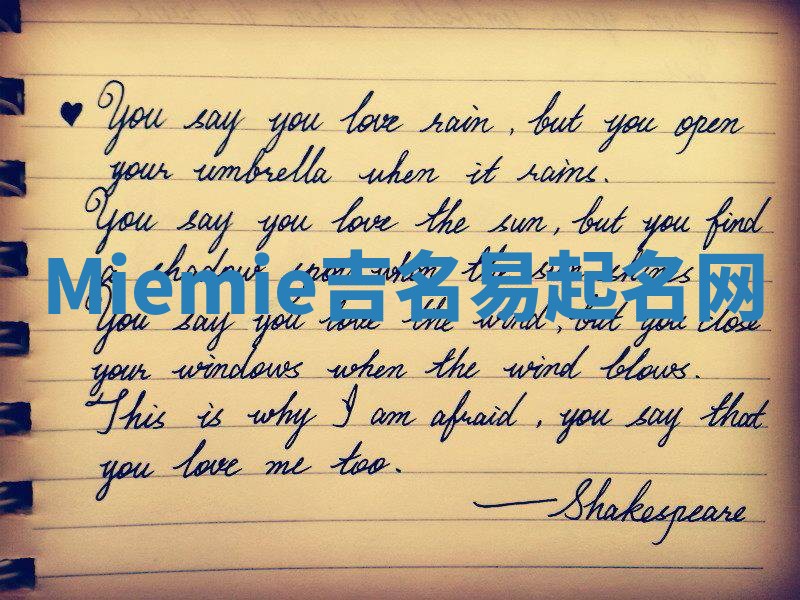 ♥ You say you love rain, but you open
your umbrella when it rains.
You say you love the sun, but you find
a shadow spot when the sun shines
Miemie吉名易起名网
You say you love the wind, but you close
your windows when the wind blows.
This is why I am afraid, you say that
you love me too.
—Shakespeare